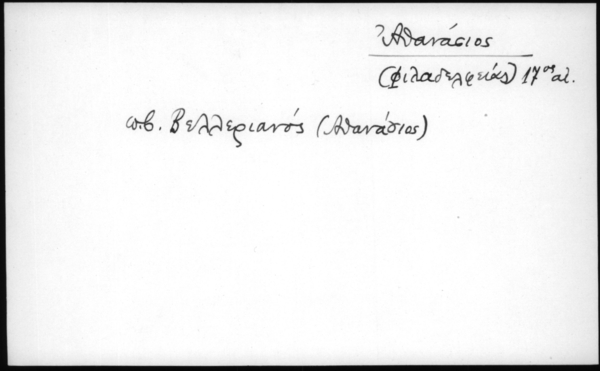 Ἀθανάσιος
(Φιλαδελφείας) 17ος αἰ.
πβ. Βελλεριανός (Ἀθανάσιος)